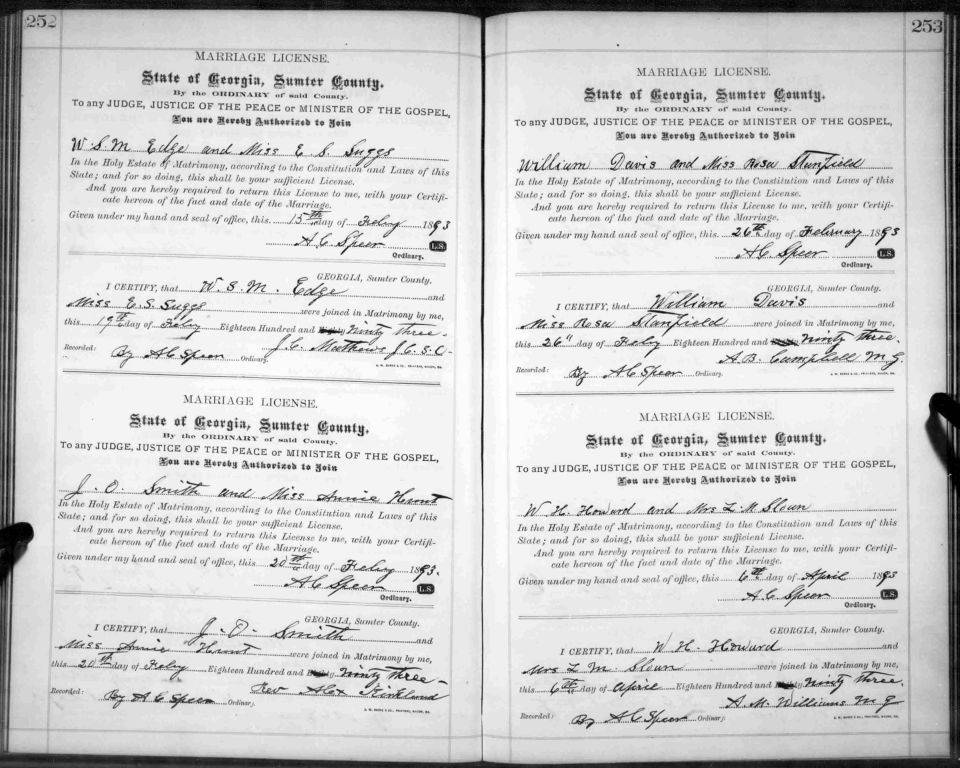 252
MARRIAGE LICENSE.
State of Georgia, Sumter County.
By the ORDINARY of said County.
To any JUDGE, JUSTICE OF THE PEACE or MINISTER OF THE GOSPEL,
You are Hereby Authorized to Join
W. S. M Edge and Miss E. S. Suggs
In the Holy Estate of Matrimony, according to the Constitution and Laws of this
State; and for so doing, this shall be your sufficient License.
And you are hereby required to return this License to me, with your Certifi-
cate hereon of the fact and date of the Marriage.
Given under my hand and seal of office, this 15th day of Feby 1893
A C Speer L.S.
Ordinary.
GEORGIA, Sumter County.
I CERTIFY, that W. S. M. Edge and
Miss E. S. Suggs were joined in Matrimony by me,
this 19th day of Feby Eighteen Hundred and Ninty three
Recorded: By A C Speer Ordinary. J. C. Mathews J. C. S. C.
MARRIAGE LICENSE.
State of Georgia, Sumter County.
By the ORDINARY of said County.
To any JUDGE, JUSTICE OF THE PEACE or MINISTER OF THE GOSPEL,
You are Hereby Authorized to Join
J. O. Smith and Miss Annie Hunt
In the Holy Estate of Matrimony, according to the Constitution and Laws of this
State; and for so doing, this shall be your sufficient License.
And you are hereby required to return this License to me, with your Certifi-
cate hereon of the fact and date of the Marriage.
Given under my hand and seal of office, this 20th day of Feby 1893.
A C Speer L.S.
Ordinary.
GEORGIA, Sumter County.
I CERTIFY, that J. O. Smith and
Miss Annie Hunt were joined in Matrimony by me,
this 20th day of Feby Eighteen Hundred and Ninty three
Recorded: By A C Speer Ordinary. Rev Alex Kirkland
253
MARRIAGE LICENSE.
State of Georgia, Sumter County.
By the ORDINARY of said County.
To any JUDGE, JUSTICE OF THE PEACE or MINISTER OF THE GOSPEL,
You are Hereby Authorized to Join
William Davis and Miss Rosa Stanfield
In the Holy Estate of Matrimony, according to the Constitution and Laws of this
State; and for so doing, this shall be your sufficient License.
And you are hereby required to return this License to me, with your Certifi-
cate hereon of the fact and date of the Marriage.
Given under my hand and seal of office, this 26th day of February 1893
A C Speer L.S.
Ordinary.
GEORGIA, Sumter County.
I CERTIFY, that William Davis and
Miss Rosa Stanfield were joined in Matrimony by me,
this 26" day of Feby Eighteen Hundred and Ninty three.
Recorded: By A C Speer Ordinary. A. B. Campbell M. G.
MARRIAGE LICENSE.
State of Georgia, Sumter County.
By the ORDINARY of said County.
To any JUDGE, JUSTICE OF THE PEACE or MINISTER OF THE GOSPEL,
You are Hereby Authorized to Join
W H. Howard and Mrs L. M Sloun
In the Holy Estate of Matrimony, according to the Constitution and Laws of this
State; and for so doing, this shall be your sufficient License.
And you are hereby required to return this License to me, with your Certifi-
cate hereon of the fact and date of the Marriage.
Given under my hand and seal of office, this 6th day of April 1893
A. C. Speer L.S.
Ordinary.
GEORGIA, Sumter County.
I CERTIFY, that W H. Howard and
Mrs L M Sloun were joined in Matrimony by me,
this 6th day of April Eighteen Hundred and Ninty three.
Recorded: By A C Speer Ordinary. A. M. Williams M G